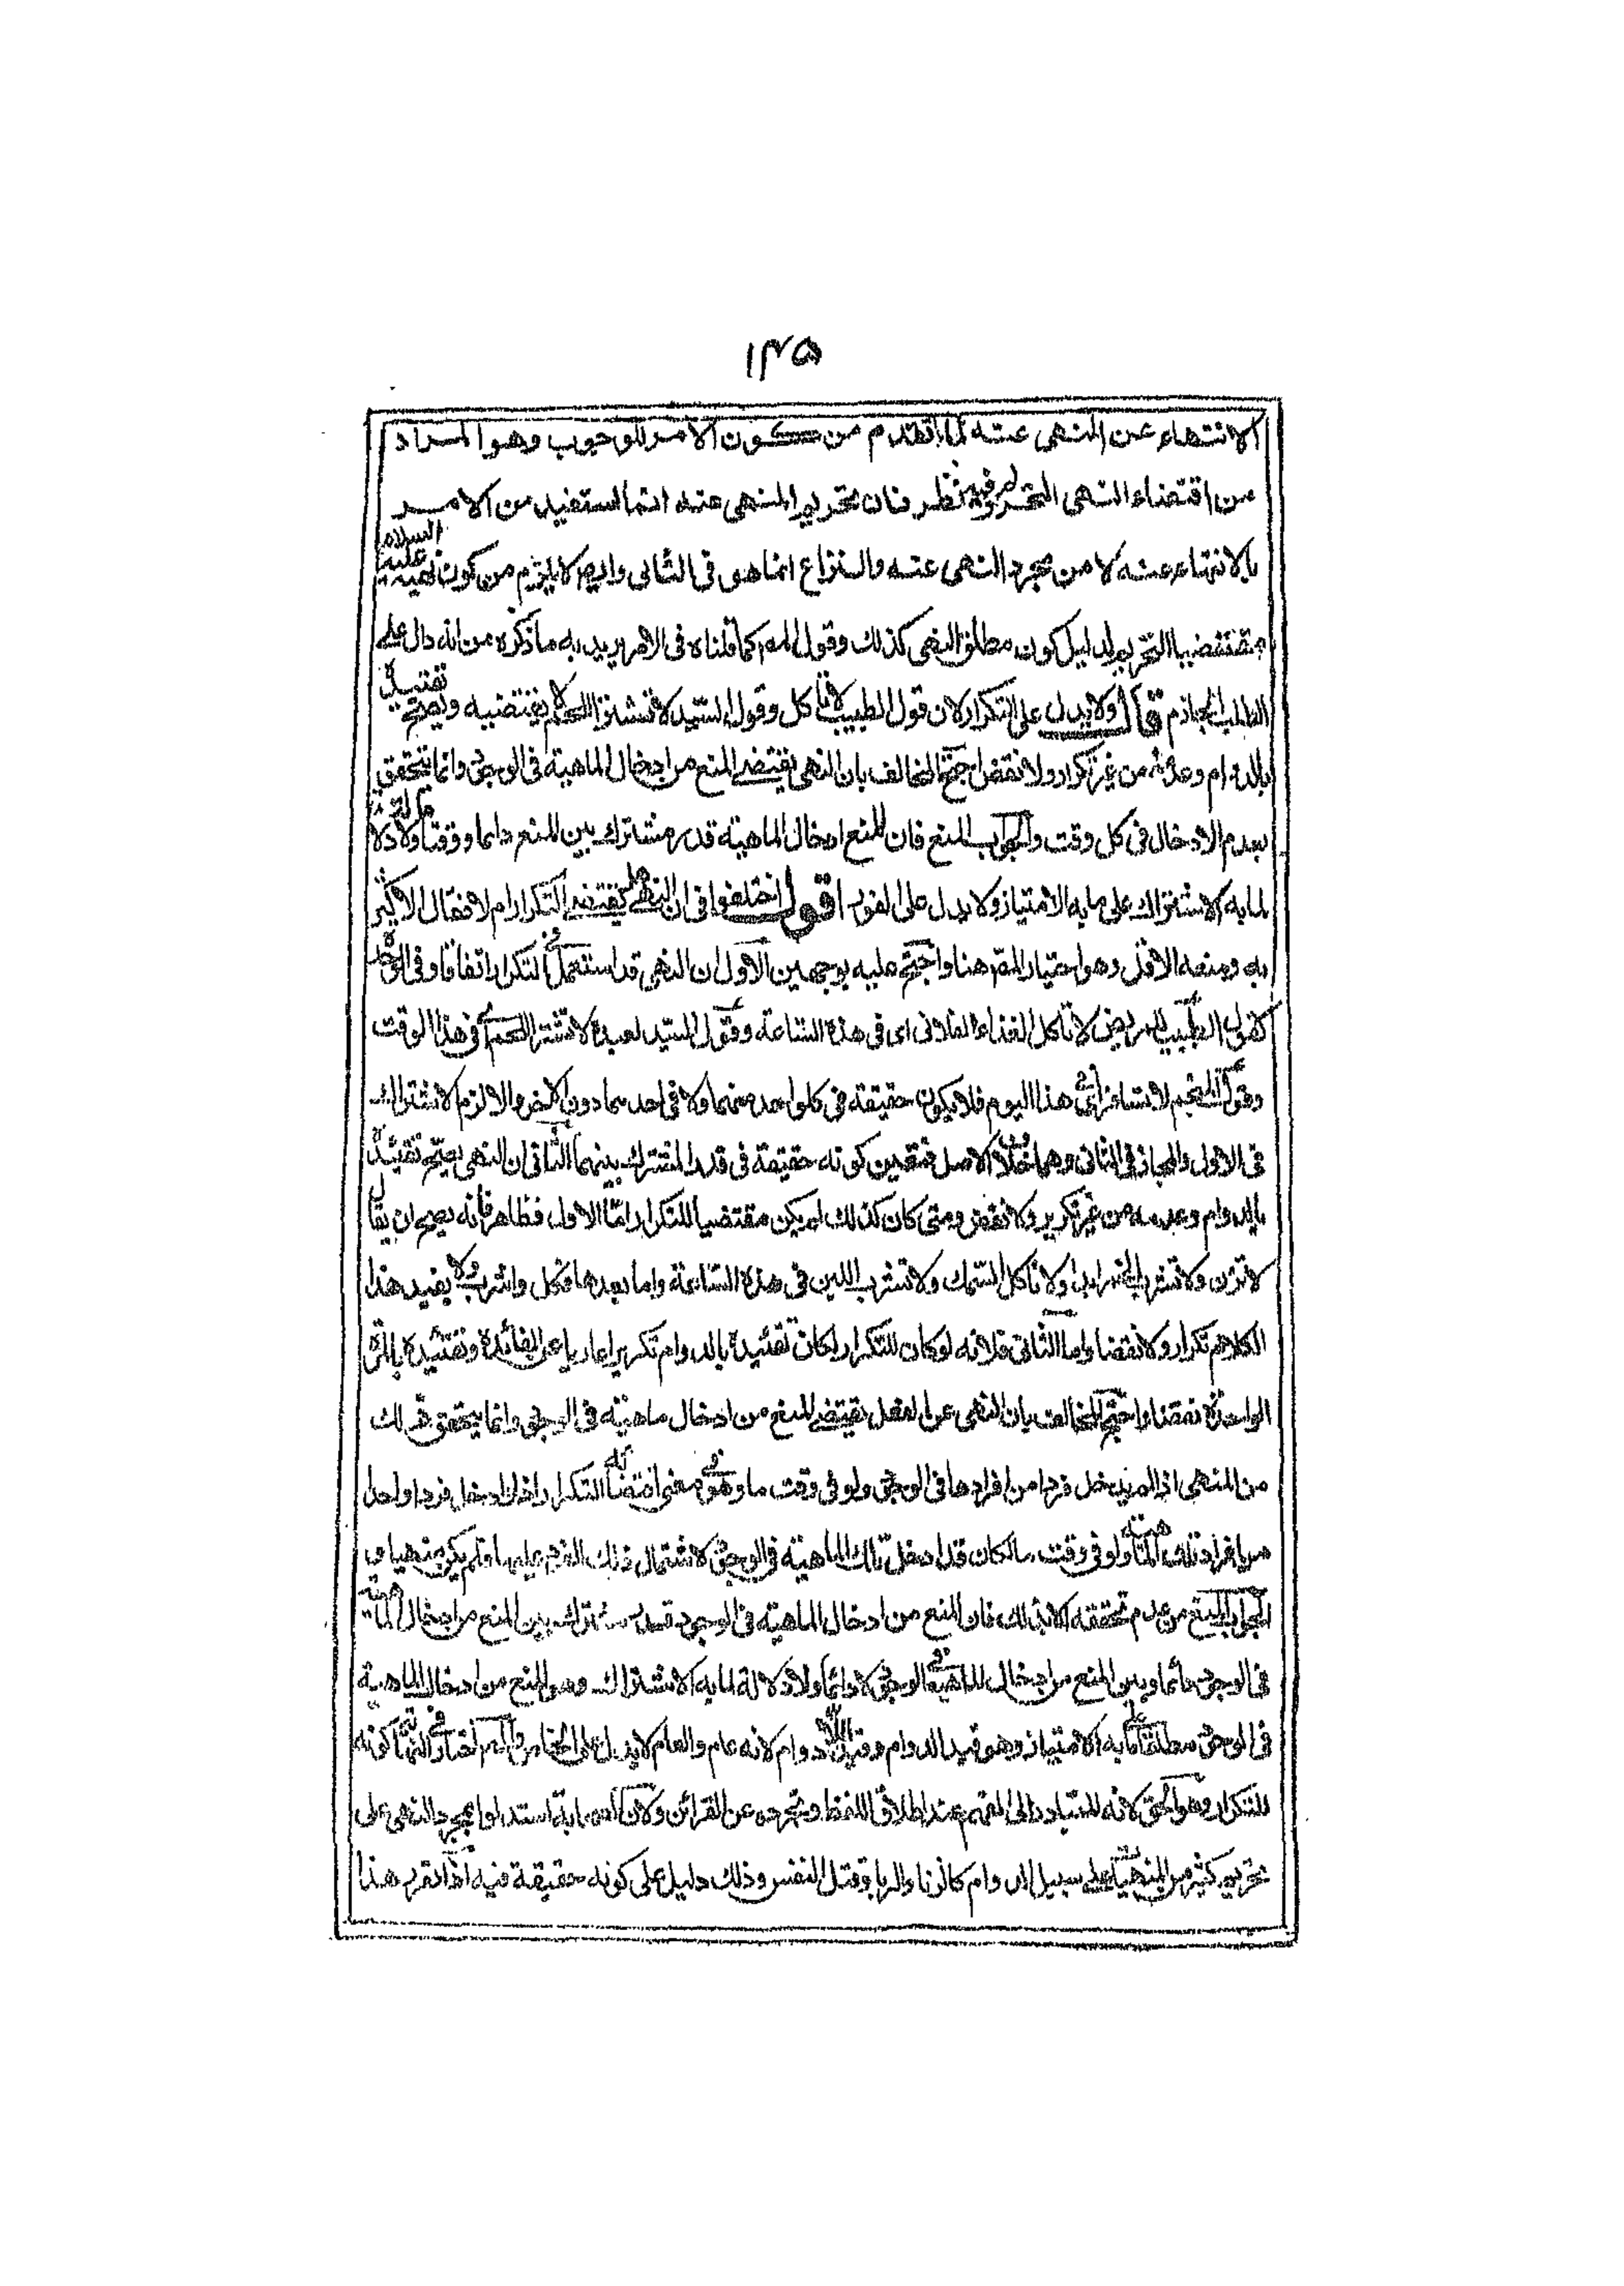 ١٣٥
الانتهاء عن المنهى عنه لما تقدم من كون الامر للوجوب وهو المراد
من اقتضاء النهى التحريم وفيه نظر فان تحريم المنهى عنه انما استفيد من الامر
بالانتهاء عنه لا من مجرد النهى عنه والنزاع انما هو فى الثانى وايض لا يلزم من كون نهيه عليه السلام
مقتضيا التحريم لدليل كون مطلق النهى كذلك وقول المص كما قلناه فى الامر يريد به ما ذكره من انه دال على
الطلب الجازم قال ولا يدل على التكرار لان قول الطبيب لا تاكل وقول السيد لا تشتر اللحم لا يقتضيه ويصح تقييده
بالدوام وعدمه من غير تكرار ولا نقض احتج المخالف بان النهى يقتضى المنع من ادخال الماهية فى الوجود وانما يتحقق
بعدم الادخال فى كل وقت والجواب المنع فان المنع ادخال الماهية قدر مشترك بين المنع دائما ووقتا ما ولا دلالة
لما به الاشتراك على ما به الامتياز ولا يدل على الفور اقول اختلفوا فى ان النهى هل يقتضى التكرار ام لا فقال الاكثر
به ومنعه الاقل وهو اختيار المص هنا واحتج عليه بوجهين الاول ان النهى قد استعمل فى التكرار اتفاقا وفى المرة
كقول الطبيب للمريض لا تاكل الغذاء الفلانى اى فى هذه الساعة وقول السيد لعبده لا تشتر اللحم اى فى هذا الوقت
وقول المنجم لا تسافر اى فى هذا اليوم فلا يكون حقيقة فى كل واحد منهما ولا فى احدهما دون الاخر والا لزم الاشتراك
فى الاول والمجاز فى الثانى وهما خلاف الاصل فتعين كونه حقيقة فى قدر المشترك بينهما الثانى ان النهى يصح تقييده
بالدوام وعدمه من غير تكرير ولا نقض ومتى كان كذلك لم يكن مقتضيا للتكرار امّا الاول فظاهر فانه يصح ان يقال
لا تزن ولا تشرب الخمر ابدا ولا تاكل السمك ولا تشرب اللبن فى هذه الساعة واما بعدها فكل واشرب ولا يفيد هذا
الكلام تكرار ولا نقضا واما الثانى فلانه لو كان للتكرار لكان تقييده بالدوام تكريرا عاريا عن الفائدة وتقييده بالمرة
الواحدة نقضا واحتج المخالف بان النهى عن الفعل يقتضى المنع من ادخال ماهيته فى الوجود وانما يتحقق ذلك
من المنهى اذا لم يدخل فردا من افرادها فى الوجود ولو فى وقت ما وهو معنى اقتضائه التكرار اذ لو ادخل فردا واحدا
من افراد تلك الماهية ولو فى وقت ما لكان قد ادخل تلك الماهية فى الوجود لاشتمال ذلك الفرد عليها فلم يكن منهيا و
الجواب المنع من عدم تحققه الا بذلك فان المنع من ادخال الماهية فى الوجود قدر مشترك بين المنع من ادخال الماهية
فى الوجود دائما وبين المنع من ادخال الماهية فى الوجود لا دائما ولا دلالة لما به الاشتراك وهو المنع من ادخال الماهية
فى الوجود مطلقا على ما به الامتياز وهو قيد الدوام وقيد اللادوام لانه عام والعام لا يدل على الخاص والمص اختار فى النهاية كونه
للتكرار وهو الحق لانه المتبادر الى الفهم عند اطلاق اللفظ وتجرده عن القرائن ولان الصحابة استدلوا بمجرد النهى على
تحريم كثير من المنهيات على سبيل الدوام كالزنا والربا وقتل النفس وذلك دليل على كونه حقيقة فيه اذا تقرر هذا